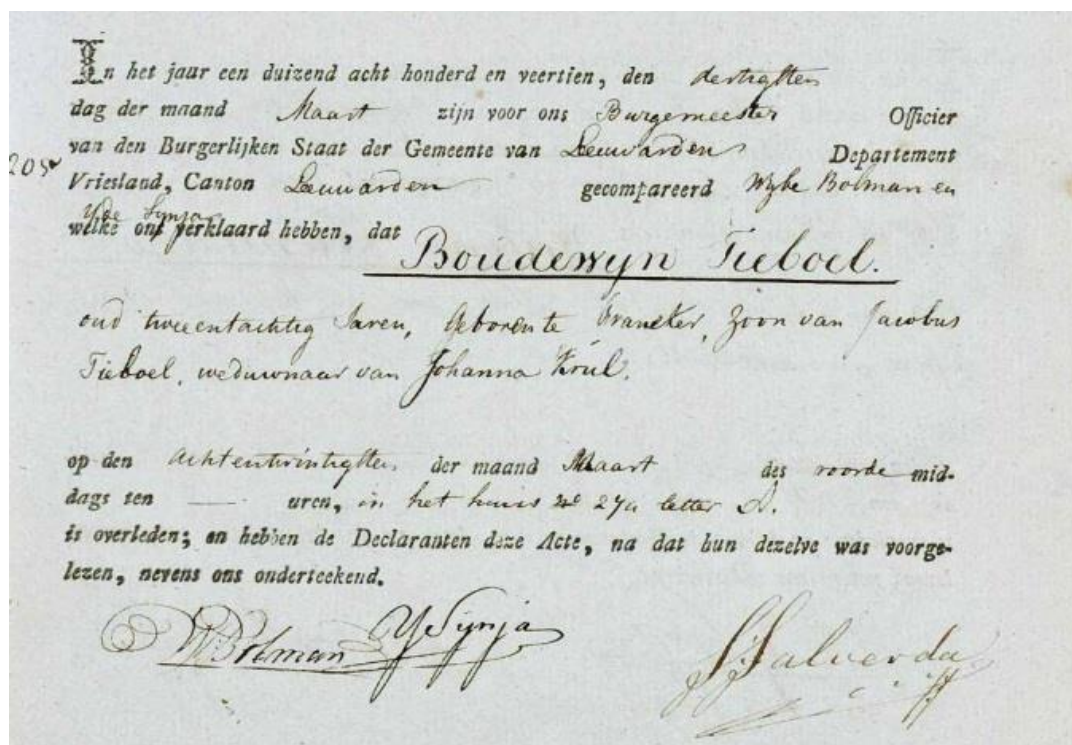 In het jaar een duizend acht honderd en veertien, den dertigsten
dag der maand Maart zijn voor ons Burgemeester Officier
van den Burgerlijken Staat der Gemeente van Leeuwarden Departement
205
Vriesland, Canton Leeuwarden gecompareerd Wybe Bolman en
Yde Synja
welke ons verklaard hebben, dat
Boudewyn Tieboel.
oud tweentachtig Jaren, Geboren te Franeker, Zoon van Jacobus
Tieboel, weduwnaar van Johanna Krul.
op den achtentwintigsten der maand Maart des voorde mid-
dags ten — uren, in het huis No 27a letter D.
is overleden; en hebben de Declaranten deze Acte, na dat hun dezelve was voorge-
lezen, nevens ons onderteekend.
W Bolman Y Synja
Salverda